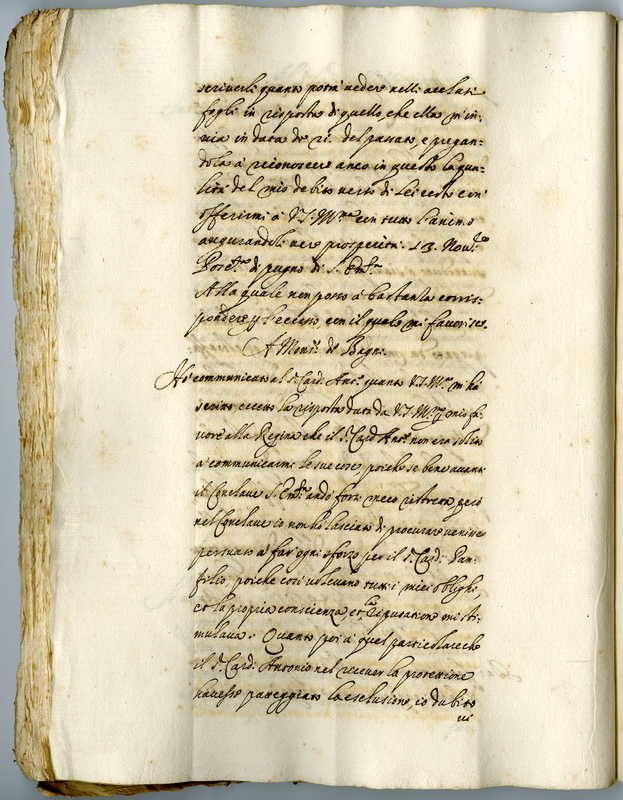 scriuerli quanto potrà uedere nelli acclusi
fogli in risposta di quello, che ella m'in-
uia in data de 21. del passato, e pregan-
dola à riconoscere anco in questo la qua-
lità del mio debito uerso di Lei resto con
offerirmi à V.S. Ill.ma con tutto l'animo
augurandoli uere prosperità. 13. Nou.re
Posc.ta di pugno di S. Em.za
Alla quale non posso à bastanza corris-
pondere l'eccesso, con il quale mi fauorisce.
A Mons.r de Bagni
Hò communicato al s.r Card. Ant.o quanto V.S. Ill.ma m'hà
scritto eccetto la risposta data da V.S. Ill.ma mio fa-
uore alla Regina che il s.r Card Ant.o non era solito
à communicarmi le sue cose, poiche se bene auanti
il Conclaue S. Em.za andò forse meco ristretta però
nel Conclaue io non hò lasciato di procurare uenisse
persuaso à far ogni sforzo per il s.r Card. Pan-
filio, poiche così uoleuano tutti i miei oblighi,
et la propria conscienza, et la riputatione mi sti-
mulaua. Quanto poi à quel particolare che
il s.r Card. Antonio nel riceuer la protettione
hauesse patteggiato la esclusione, io dubito
ui